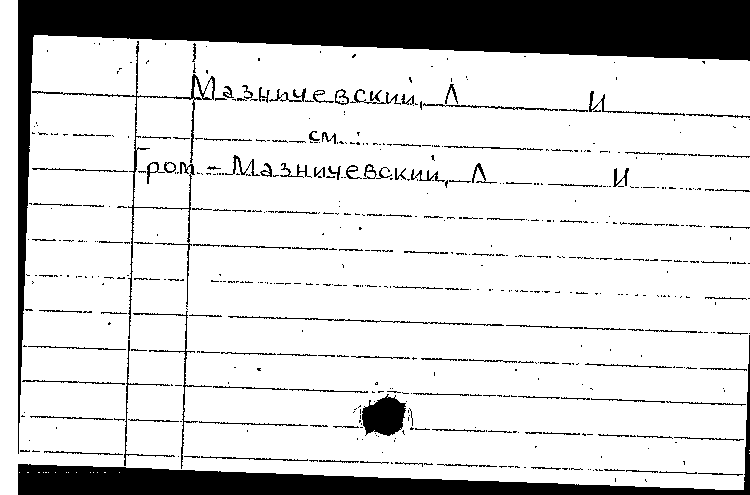 Мазничевский, Л И
см.:
Гром-Мазничевский, Л И